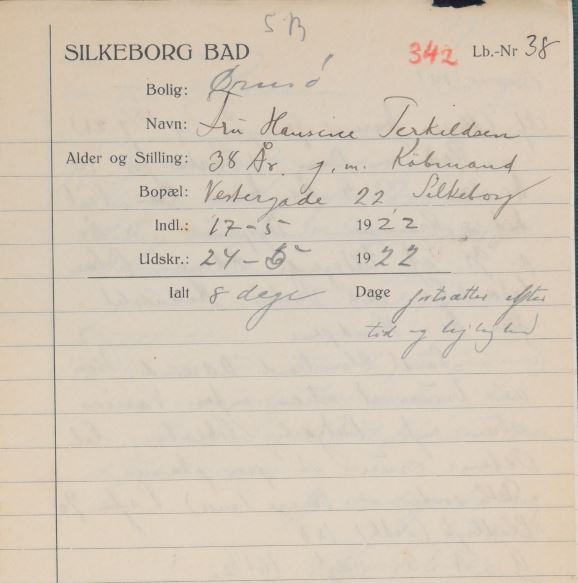 S.B
SILKEBORG BAD 342 Lb.-Nr 38
Bolig: Ørnsø
Navn: Fru Hansine Terkildsen
Alder og Stilling: 38 År g. m. Købmand
Bopæl: Vestergade 22 Silkeborg
Indl.: 17-5 1922
Udskr.: 24-5 1922
Ialt 8 dage Dage fortsætter efter
tid og lejlighed